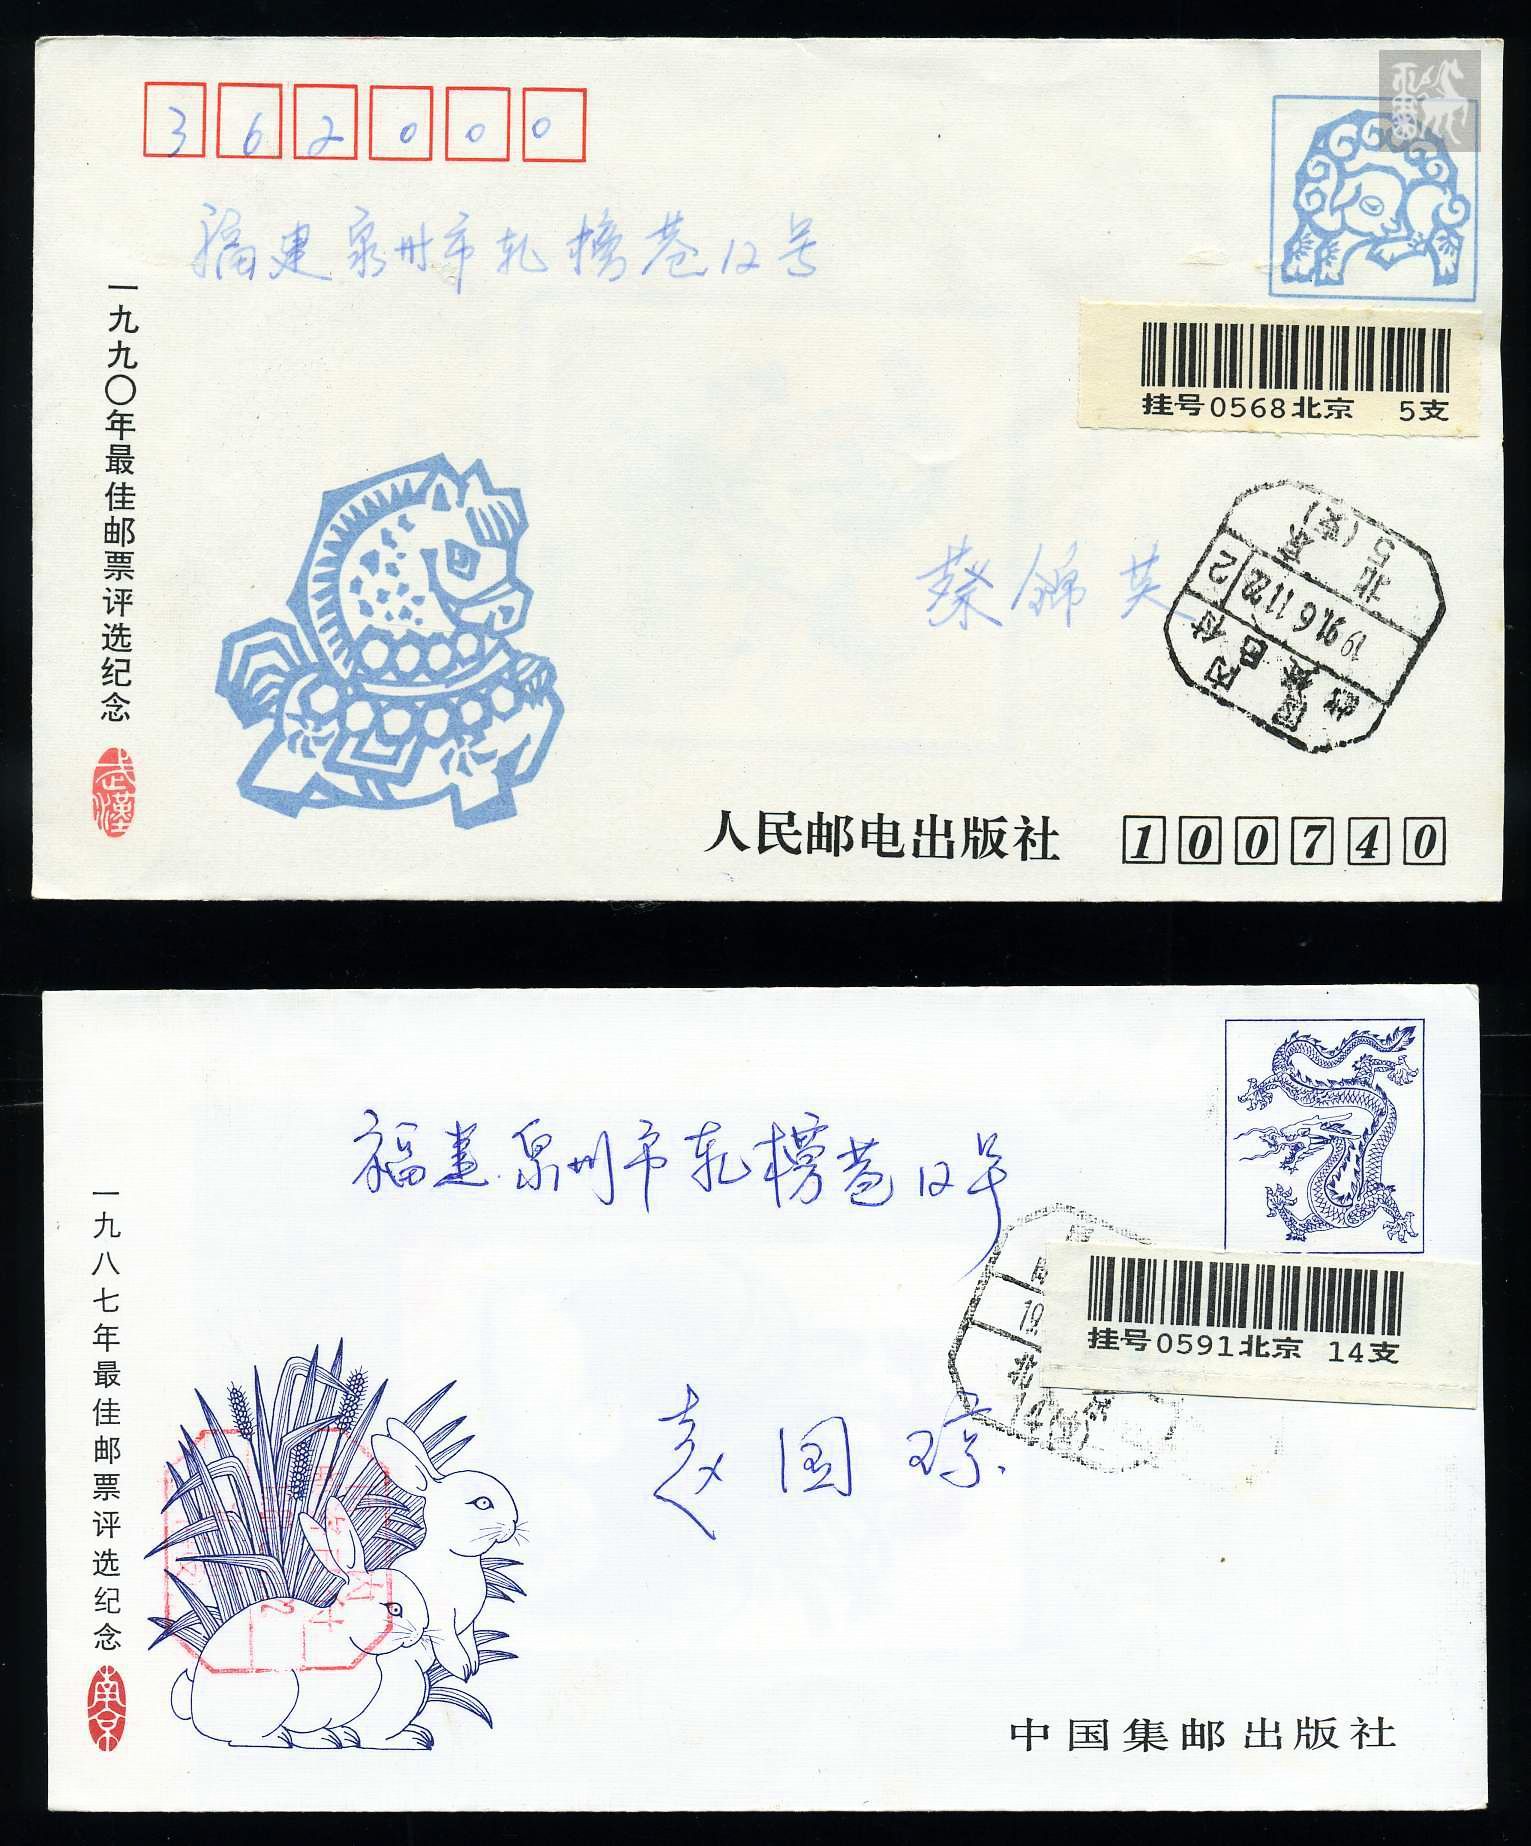 362000
福建泉州市轧榜巷12号
一九九〇年最佳邮票评选纪念
武漢
挂号0568北京 5支
蔡锦英
北京
5(支)
1991.6.11.22
2
国内
邮资已付
人民邮电出版社 100740
福建泉州市轧榜巷12号
一九八七年最佳邮票评选纪念
南京
挂号0591北京 14支
赵国琼
中国集邮出版社